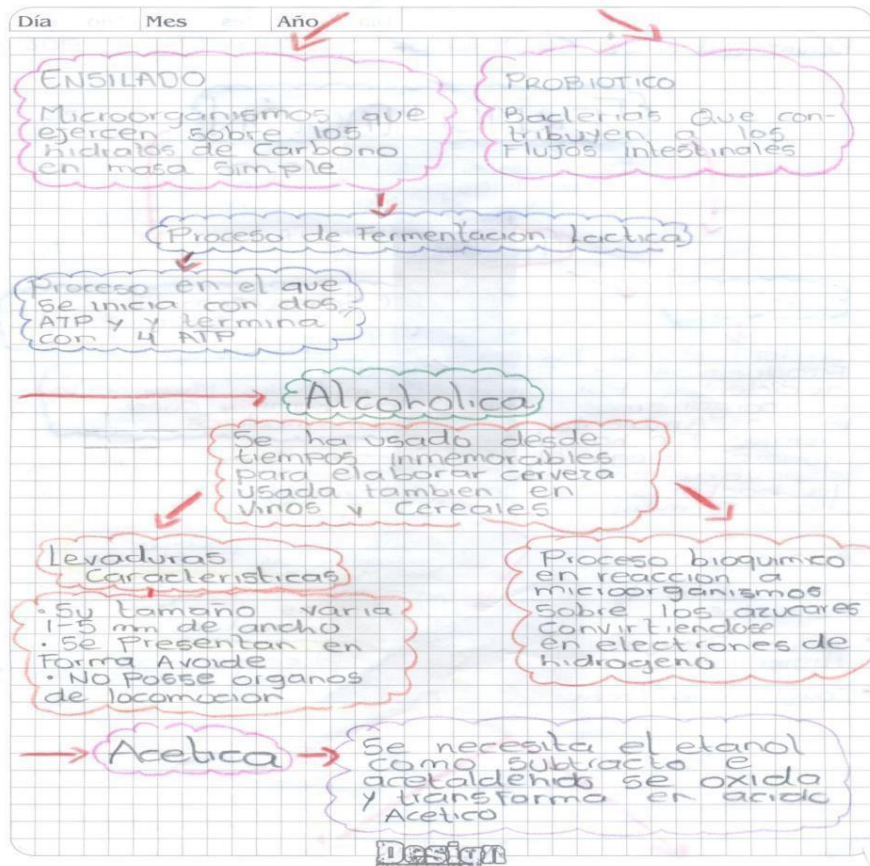 Día Mes Año
ENSILADO
Microorganismos que
ejercen sobre los
hidratos de Carbono
en masa simple
PROBIOTICO
Bacterias Que con-
tribuyen a los
Flujos intestinales
Proceso de Fermentacion Lactica
Proceso en el que
se inicia con dos
ATP y y termina
con 4 ATP
Alcoholica
Se ha usado desde
tiempos inmemorables
para elaborar cerveza
usada tambien en
vinos y Cereales
Levaduras
Caracteristicas
• Su tamaño varia
1-5 mm de ancho
• Se Presentan en
Forma Avoide
• No Posse organos
de locomocion
Proceso bioquimico
en reaccion a
microorganismos
sobre los azucares
convirtiendose
en electrones de
hidrogeno
Acetica
Se necesita el etanol
como subtracto e
acetaldehido se oxida
y transforma en acido
Acetico
Design